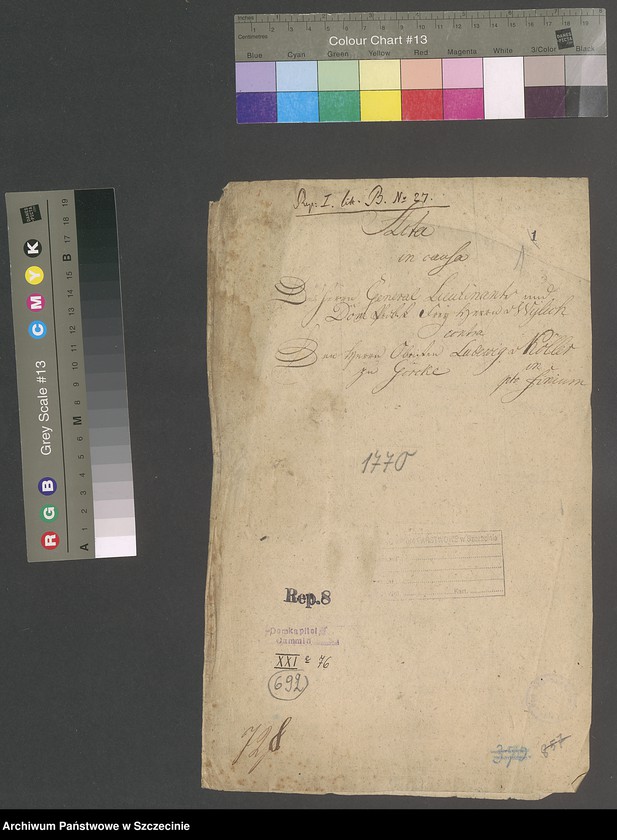 Inches
Centimetres
Colour Chart #13
Blue Cyan Green Yellow Red Magenta White 3/Color Black
Grey Scale #13
R G B C M Y K
A 1 2 3 4 5 6 M 8 9 10 11 12 13 14 15 B 17 18 19
Rep: I. lit. B. No 27.
Acta
1
in causa
Herrn General Lieutinants und
Herrn v Wylich
contra
Den Herrn Obersten Ludewig v Köller
zu Görcke in
pto finium
1770
Rep. 8
Domkapitel
Cammin
XXI 76
692
728
379
857
Archiwum Państwowe w Szczecinie